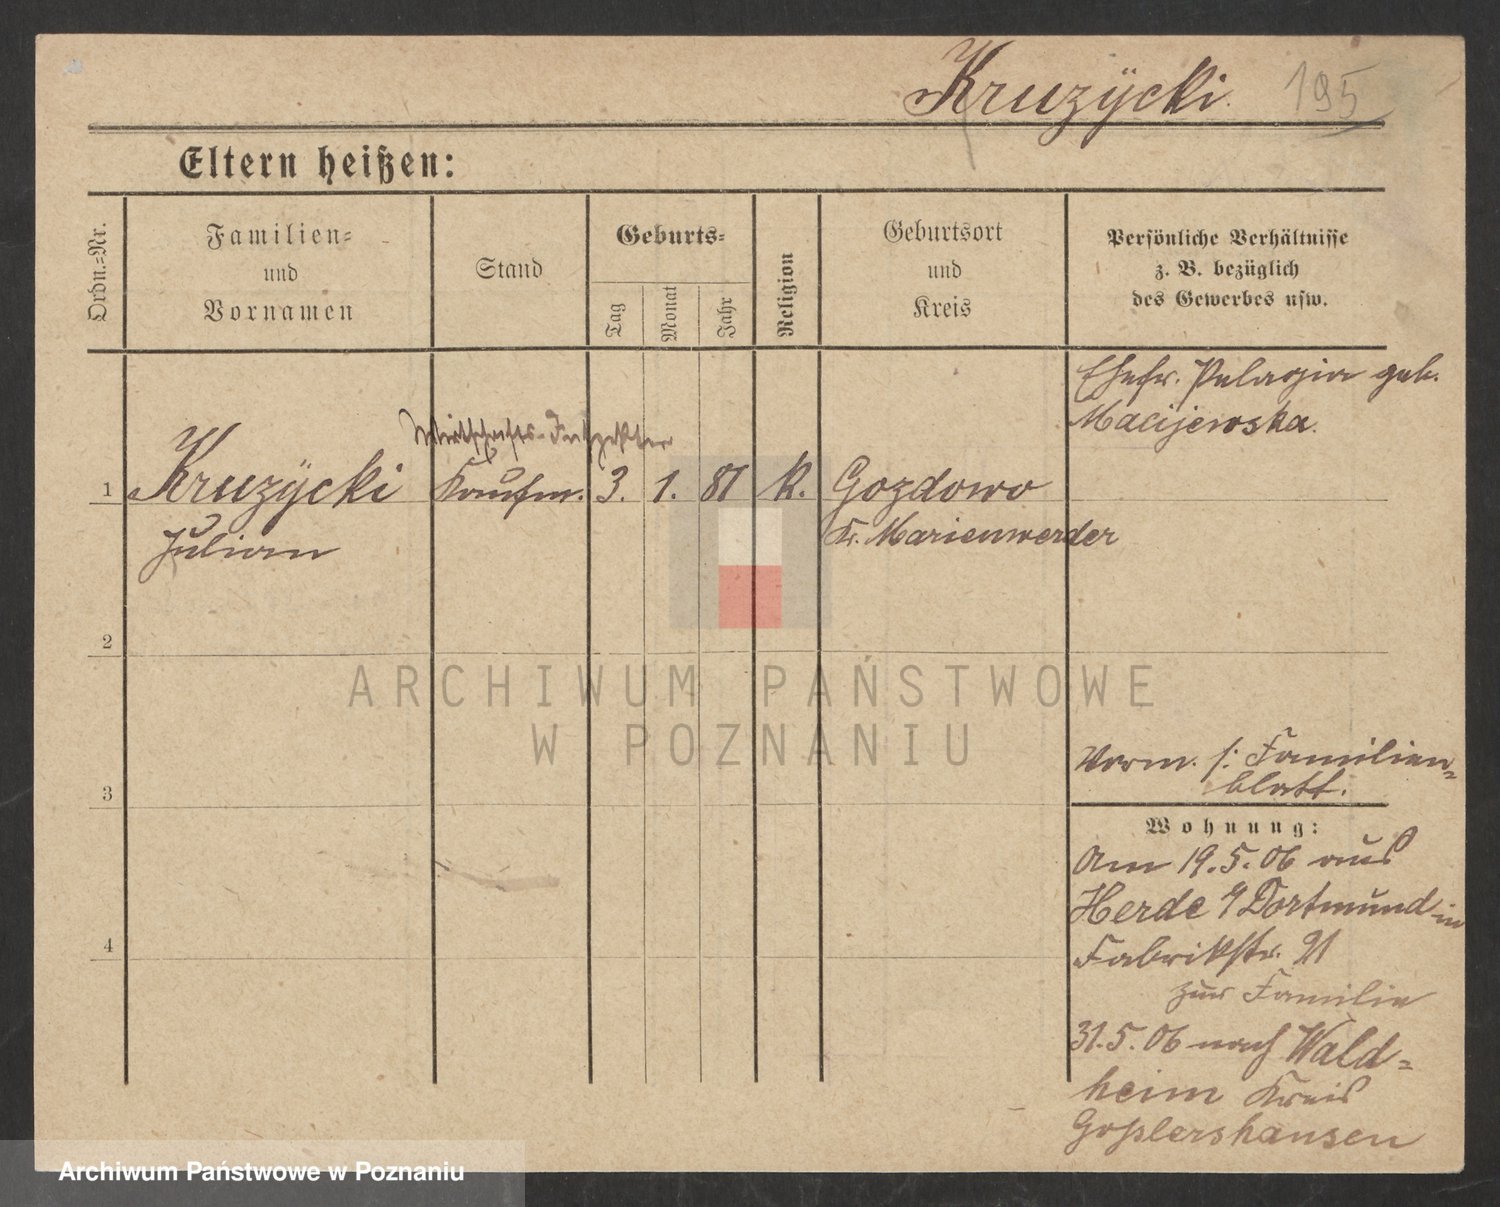 Kruzÿcki. 195
Eltern heißen:
Ordn.=Nr.
Familien=
und
Vornamen
Stand
Geburts=
Tag
Monat
Jahr
Religion
Geburtsort
und
Kreis
Persönliche Verhältnisse
z. B. bezüglich
des Gewerbes usw.
Ehefr. Pelagia geb.
Macijewska.
Wirtschafts-Inspektor
1 Kruzÿcki Kaufm. 3. 1. 81 K. Gozdowo
Julian
Kr. Marienwerder
2
3
4
Verm. s: Familien=
blatt.
Wohnung:
Am 19.5.06 aus
Herde Dortmund in
Fabrikstr. 21
zur Familie
31.5.06 nach Wald=
heim Kreis
Goßlershausen
ARCHIWUM PAŃSTWOWE
W POZNANIU
Archiwum Państwowe w Poznaniu